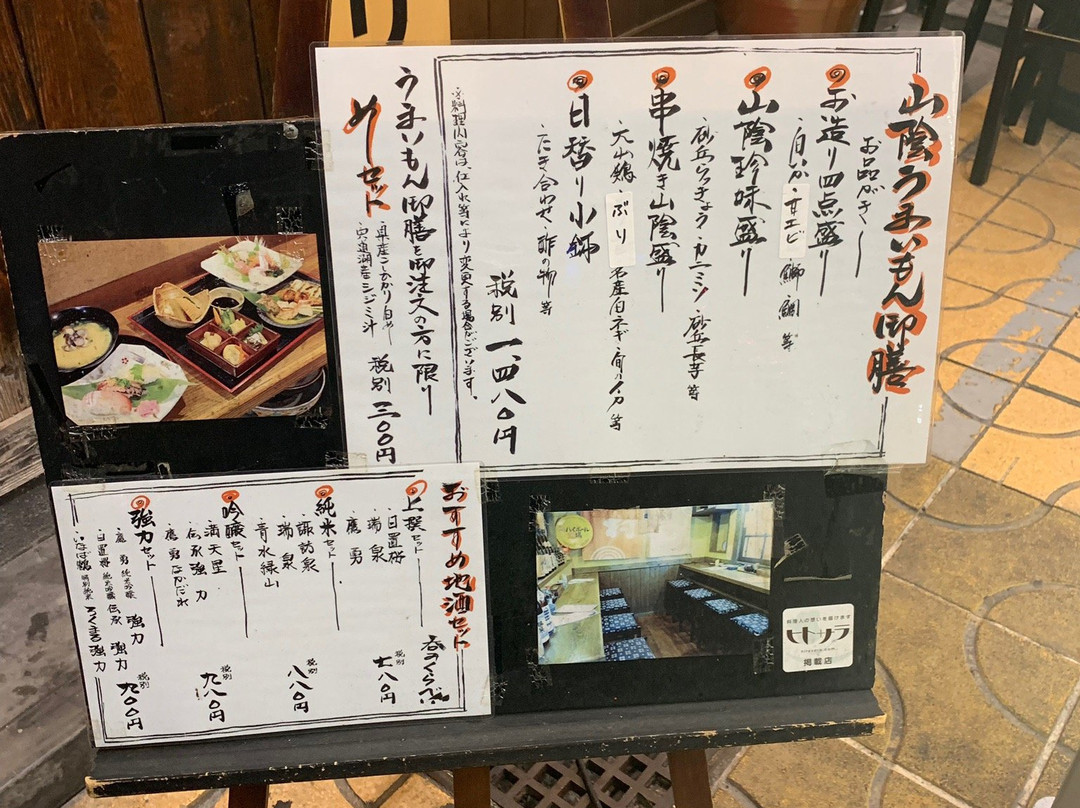 山陰うまいもん御膳
お品がき
お造り四点盛り
白いか、甘エビ、鰤、鯛 等
山陰珍味盛り
砂丘らっきょう、カニミソ、砂丘長芋 等
串焼き山陰盛り
大山鶏、ぶり、名産白ネギ、旬のイカ 等
日替り小鉢
たき合わせ、酢の物 等
税別 一、四八〇円
※料理内容は仕入れ等により変更する場合がございます。
うまいもん御膳を御注文の方に限り
めしセット
県産こしひかり白めし
宍道湖産シジミ汁
税別 三〇〇円
おすすめ地酒セット
呑みくらべ
上撰セット
日置桜
瑞泉
鷹勇
税別 七八〇円
純米セット
諏訪泉
瑞泉
青水緑山
税別 八八〇円
吟醸セット
満天星
伝承強力
鷹勇なかだれ
税別 九八〇円
強力セット
鷹勇 純米吟醸 強力
日置桜 純米吟醸 伝承強力
いなば鶴 特別純米 ろくまる強力
税別 九〇〇円
料理人の想いを届けます
ヒトサラ
hitosara.com
掲載店